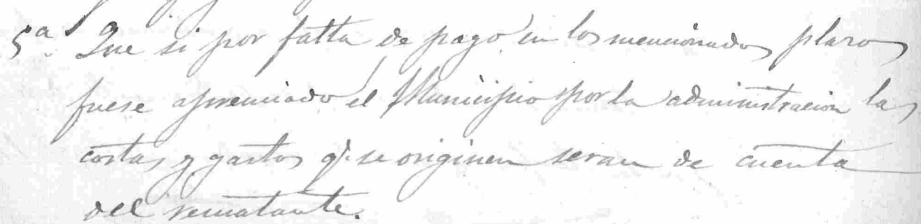 5ª Que si por falta de pago en los mencionados plazos
fuese apremiado el Municipio por la administracion las
costas y gastos q. se originen seran de cuenta
del rematante.